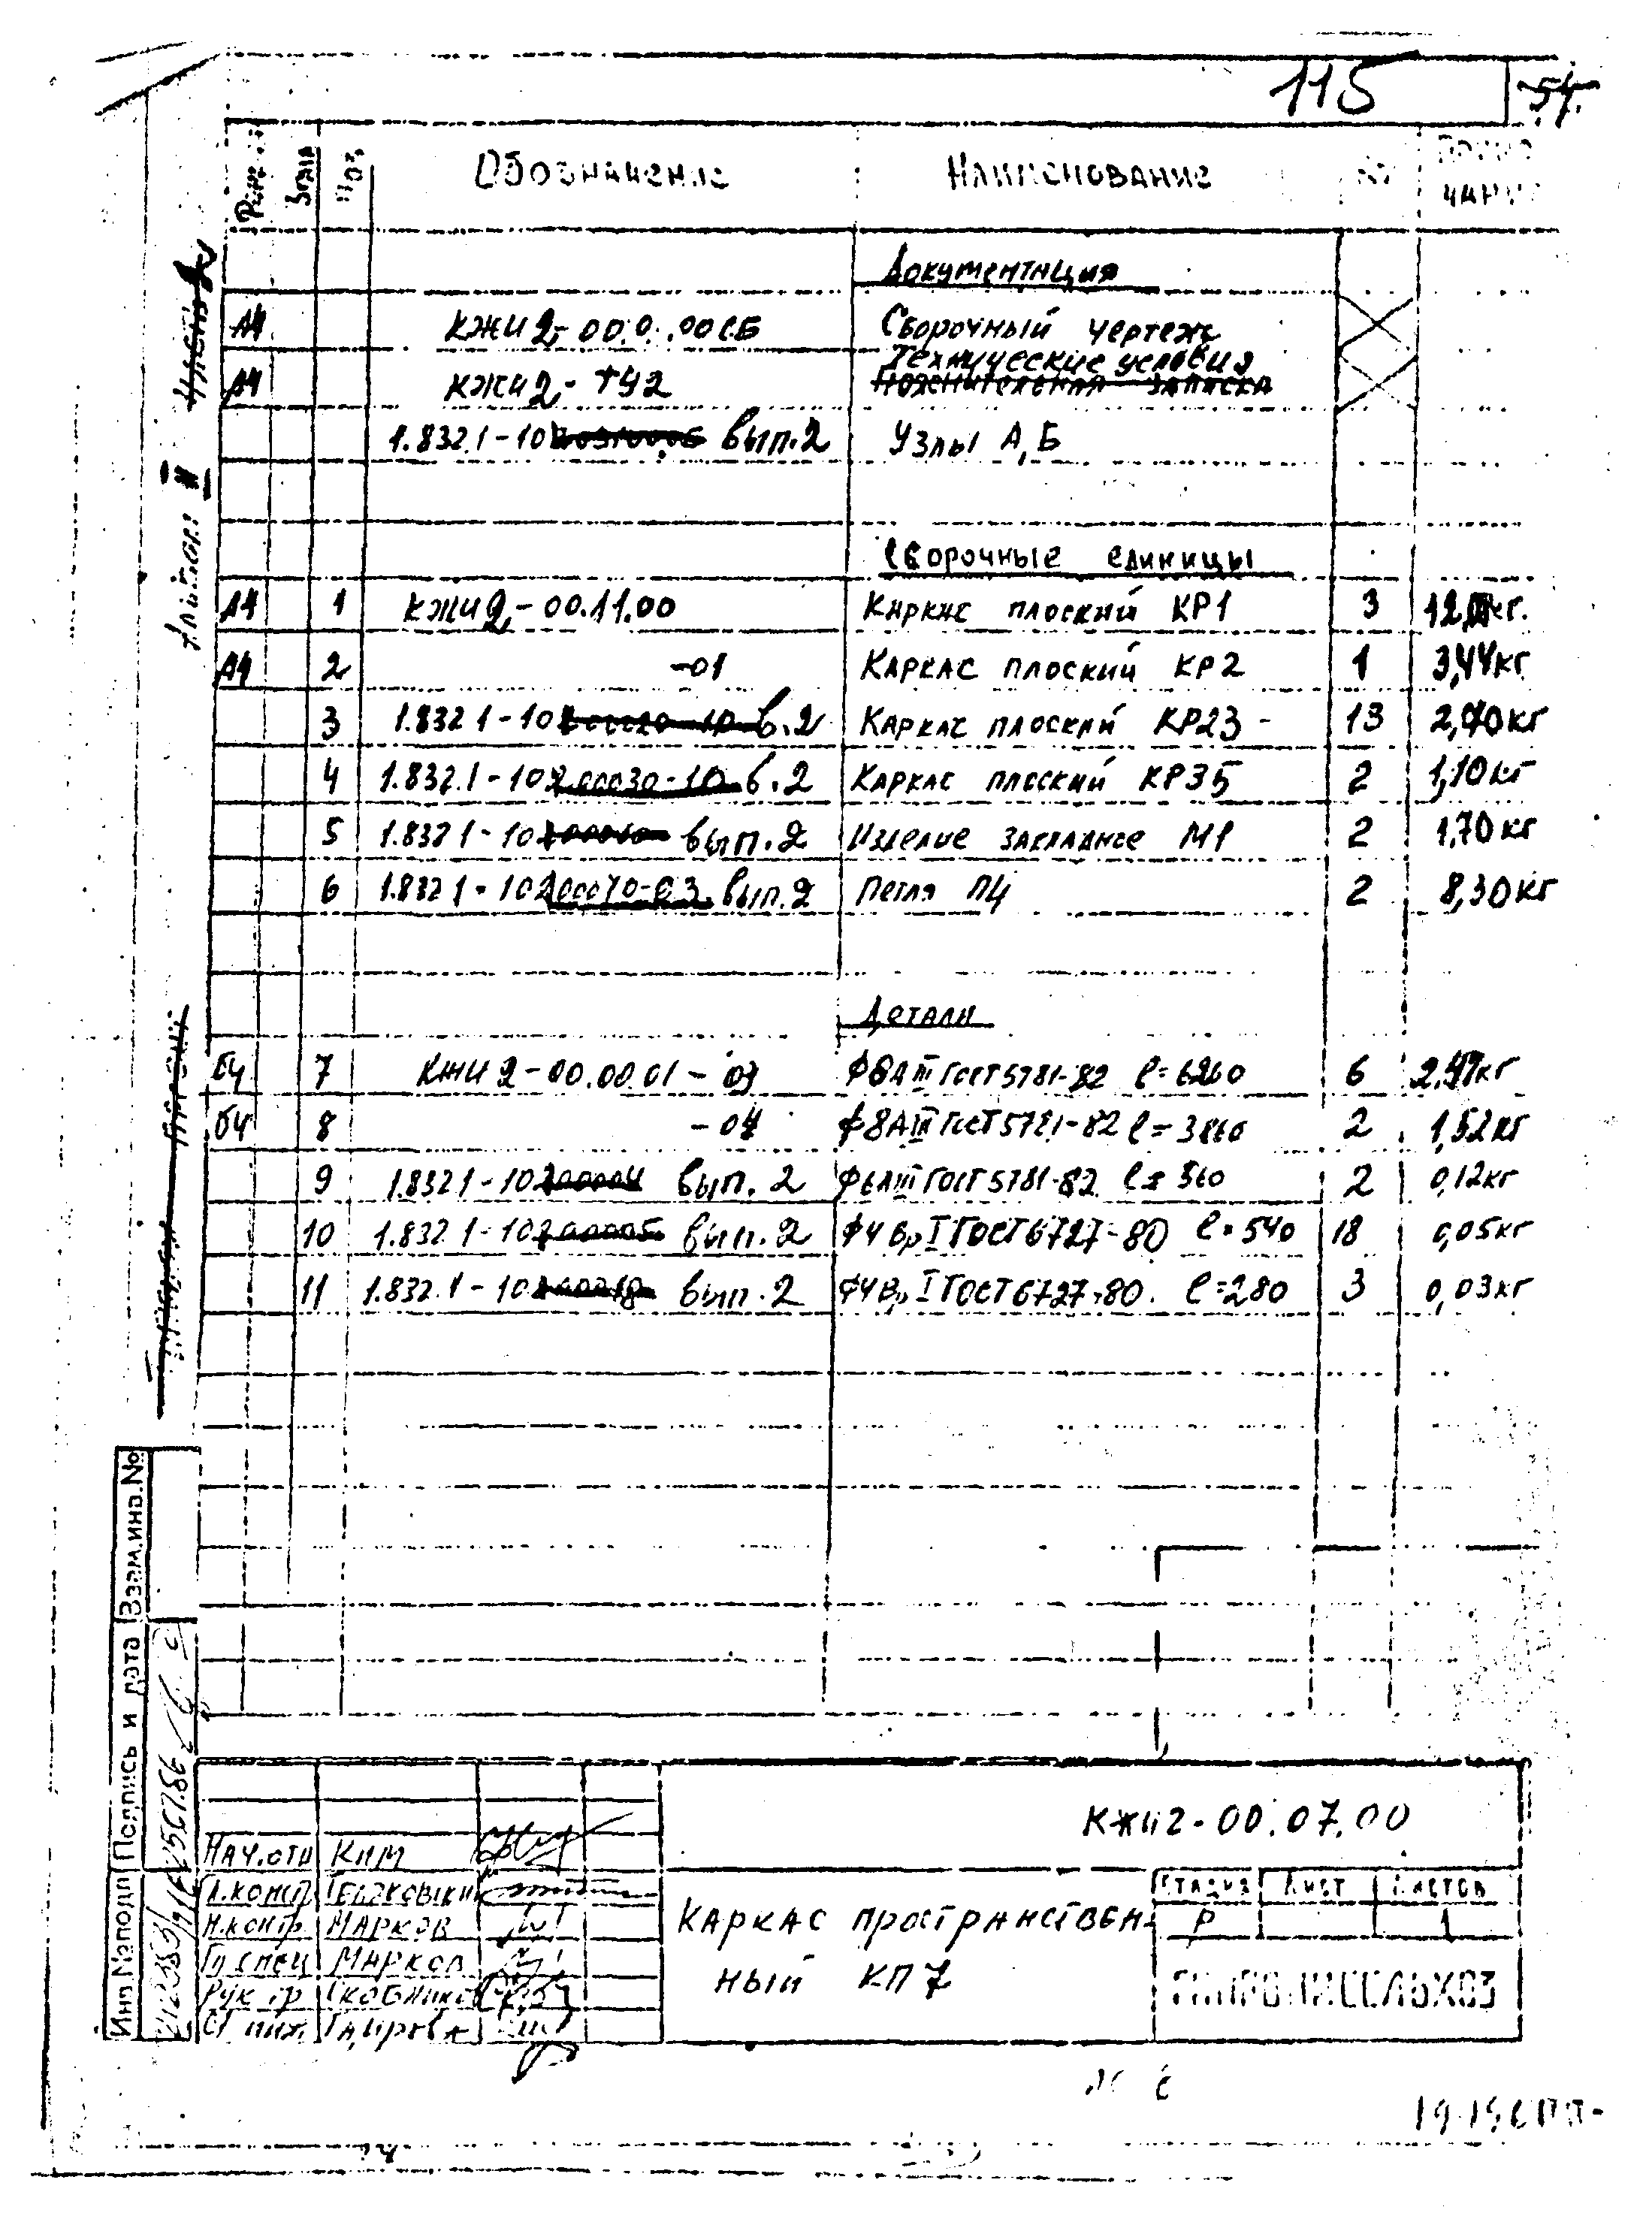 115 54.
Зона Поз. Обозначение Наименование
Документация
А4 КЖИ2-00.0 .00СБ Сборочный чертеж
Технические условия
А4 КЖИ2-ТУ2 Пояснительная записка
1.832.1-10 вып.2 Узлы А,Б
Сборочные единицы
А4 1 КЖИ2-00.11.00 Каркас плоский КР1 3
А4 2 -01 Каркас плоский КР2 1 3,44кг
3 1.832.1-10 в.2 Каркас плоский КР23 - 13 2,70кг
4 1.832.1-10 2.00030-10 в.2 Каркас плоский КР35 2 1,10кг
5 1.832.1-10 вып.2 Изделие закладное М1 2 1,70кг
6 1.832.1-10 2.00070-03 вып.2 Петля П4 2 8,30кг
Детали
БЧ 7 КЖИ2-00.00.01- ф8АIII ГОСТ 5781-82 ℓ=6260 6
БЧ 8 -04 ф8АIII ГОСТ 5781-82 ℓ=3860 2 1,52кг
9 1.832.1-10 вып.2 ф6АIII ГОСТ 5781-82 ℓ=560 2 0,12кг
10 1.832.1-10 вып.2 ф4ВрI ГОСТ 6727-80 ℓ=540 18 0,05кг
11 1.832.1-10 вып.2 ф4ВрI ГОСТ 6727-80. ℓ=280 3 0,03кг
Альбом II
Взам.инв.№
Подпись и дата
Инв.№подл
КЖИ2-00.07.00
Нач.отд Ким
Гл.конст
Н.контр. Марков
Гл.спец Марков
Рук гр
Ст инж.
Каркас пространствен-
ный КП7
Стадия Лист Листов
Р 1
ГИПРОНИСЕЛЬХОЗ